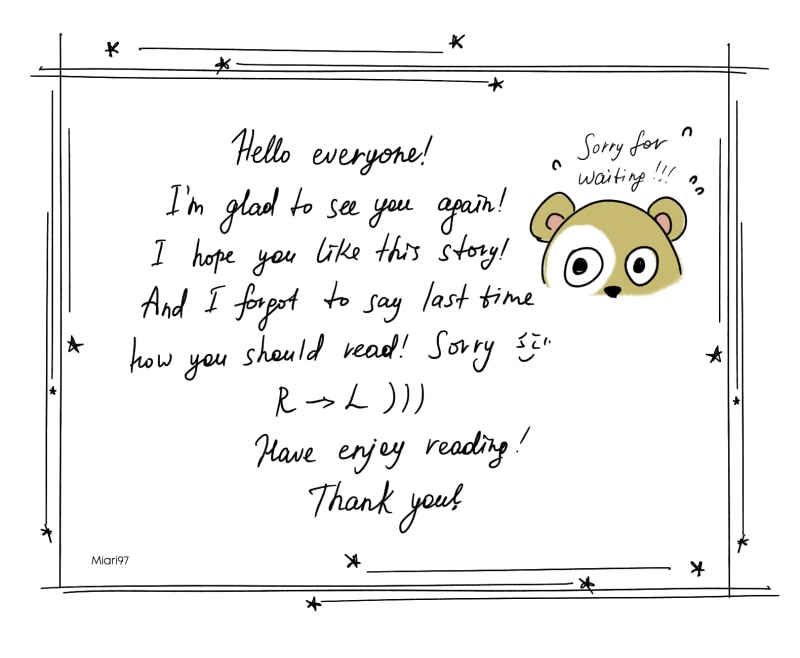 Hello everyone!
I'm glad to see you again!
I hope you like this story!
And I forgot to say last time
how you should read! Sorry
R → L )))
Have enjoy reading!
Thank you!
Sorry for
waiting!!!
Miari97